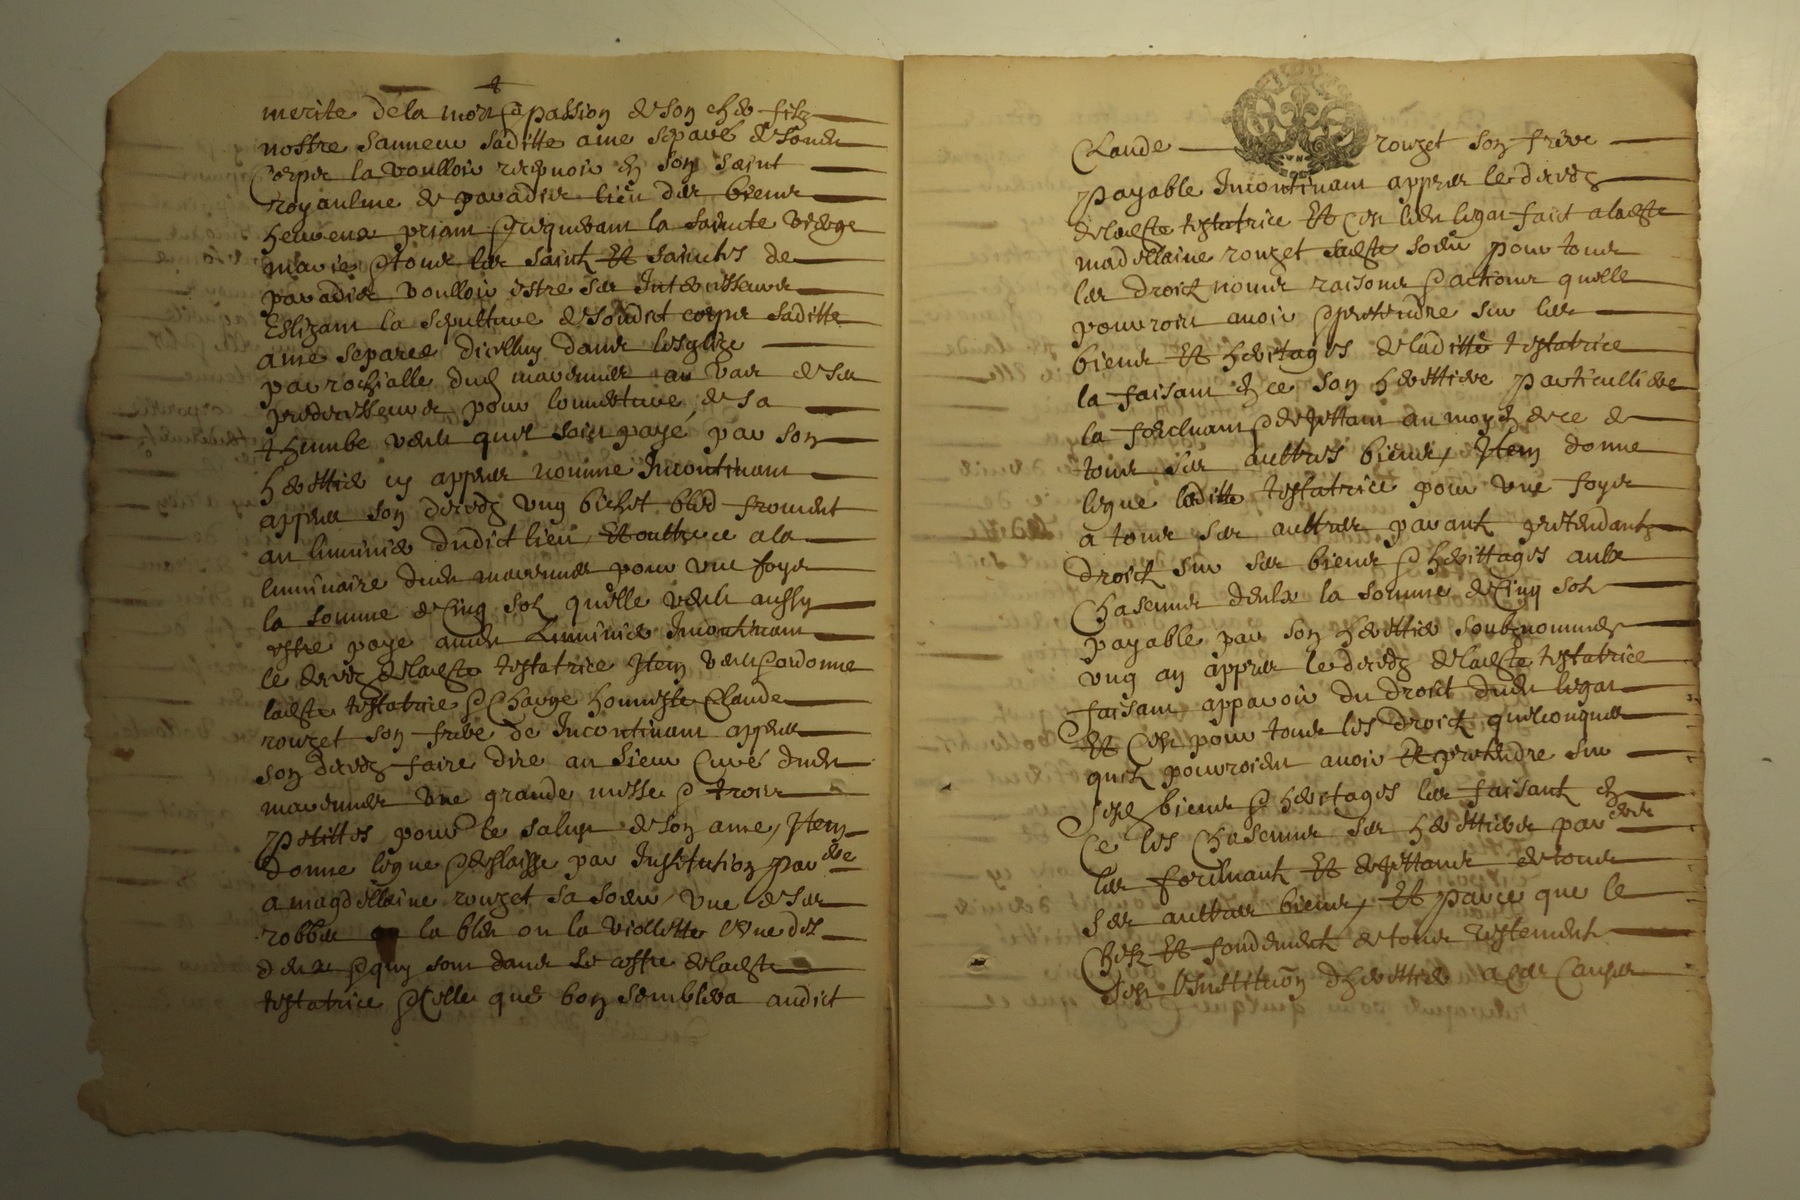 merite de la mort & passion de son cher filz
nostre sauueur saditte ame separé de sondit
Corps la voulloir recepuoir en son saint
royaulme de paradis lieu des biens
heureux priant & requerant la saincte vierge
marie & tous les saintz Et sainctes de
paradis voulloir estre ses Intercesseurs
Eslizant la sepulture de sondict corps saditte
ame separee dicelluy dans lesglize
parrochialle dud au vas de ses
predecesseurs pour louuerture de sa
thumbe veult quil soit payé par son
herittier cy appres nommé Incontinant
appres son decedz ung bichet bled froment
au luminier dudict lieu, Et oultre ce a la
luminaire dudit pour une foys
la somme de Cinq solz quelle veult aussy
estre payé audit Luminier Incontinant
le decedz de ladicte testatrice Item veult & ordonne
ladicte testatrice & Charge honneste Claude
rouzet son frere de Incontinant appres
son decedz faire dire au sieur Curé dudit
une grande messe & trois
Petittes pour le salut de son ame, Item
donne legue & deslaisse par Institution par
a magdellaine rouzet sa soeur, une de ses
robbes la bleu ou la viollette l'une des
deux & quy sont dans le coffre de ladicte
testatrice & Celle que bon semblera audict
Claude rouzet son frere
Payable Incontinant appres le decedz
de ladicte testatrice Et C'est ledit legat faict a ladicte
madellaine rouzet sadicte soeur pour tous
les droictz noms raisons & actions quelle
pourroit auoir & pretendre sur les
biens Et heritages de laditte testatrice
la faisant en ce son herittiere particulliere
la forcluant & dejettant au moyen de ce de
tous ses aultres biens, Item donne
legue laditte testatrice pour une foys
a tous ses aultres parantz pretendantz
droictz sur ses biens & herittages aulx
Chascuns deulx la somme de Cinq solz
payable par son herittier soubznommés
ung an appres le decedz de ladicte testatrice
faisant apparoir du droict dudit legat
Et C'est pour tous les droictz quelconques
quilz pouroient auoir Et pretendre sur
sesd biens & heritages les faisant en
Ce les Chascuns ses herittiers par
les forcluant Et dejettant de tous
ses aultres biens, Et parce que le
Chefz Et fondement de tous testement
est l'Institution d'herittier a ces Causes